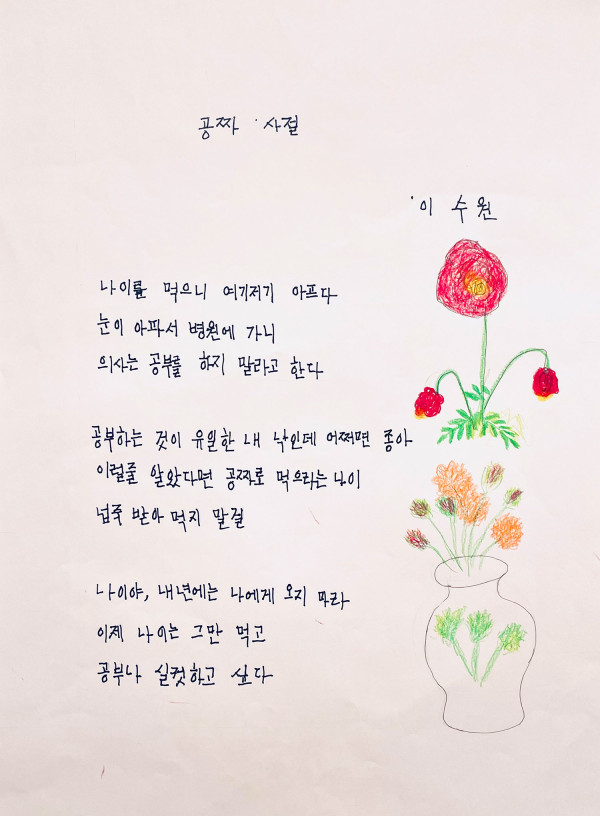 공짜 사절
이수원
나이를 먹으니 여기저기 아프다
눈이 아파서 병원에 가니
의사는 공부를 하지 말라고 한다
공부하는 것이 유일한 내 낙인데 어쩌면 종아
이럴줄 알았다면 공짜로 먹으라는 나이
넙죽 받아 먹지 말걸
나이야, 내년에는 나에게 오지 마라
이제 나이는 그만 먹고
공부나 실컷하고 싶다